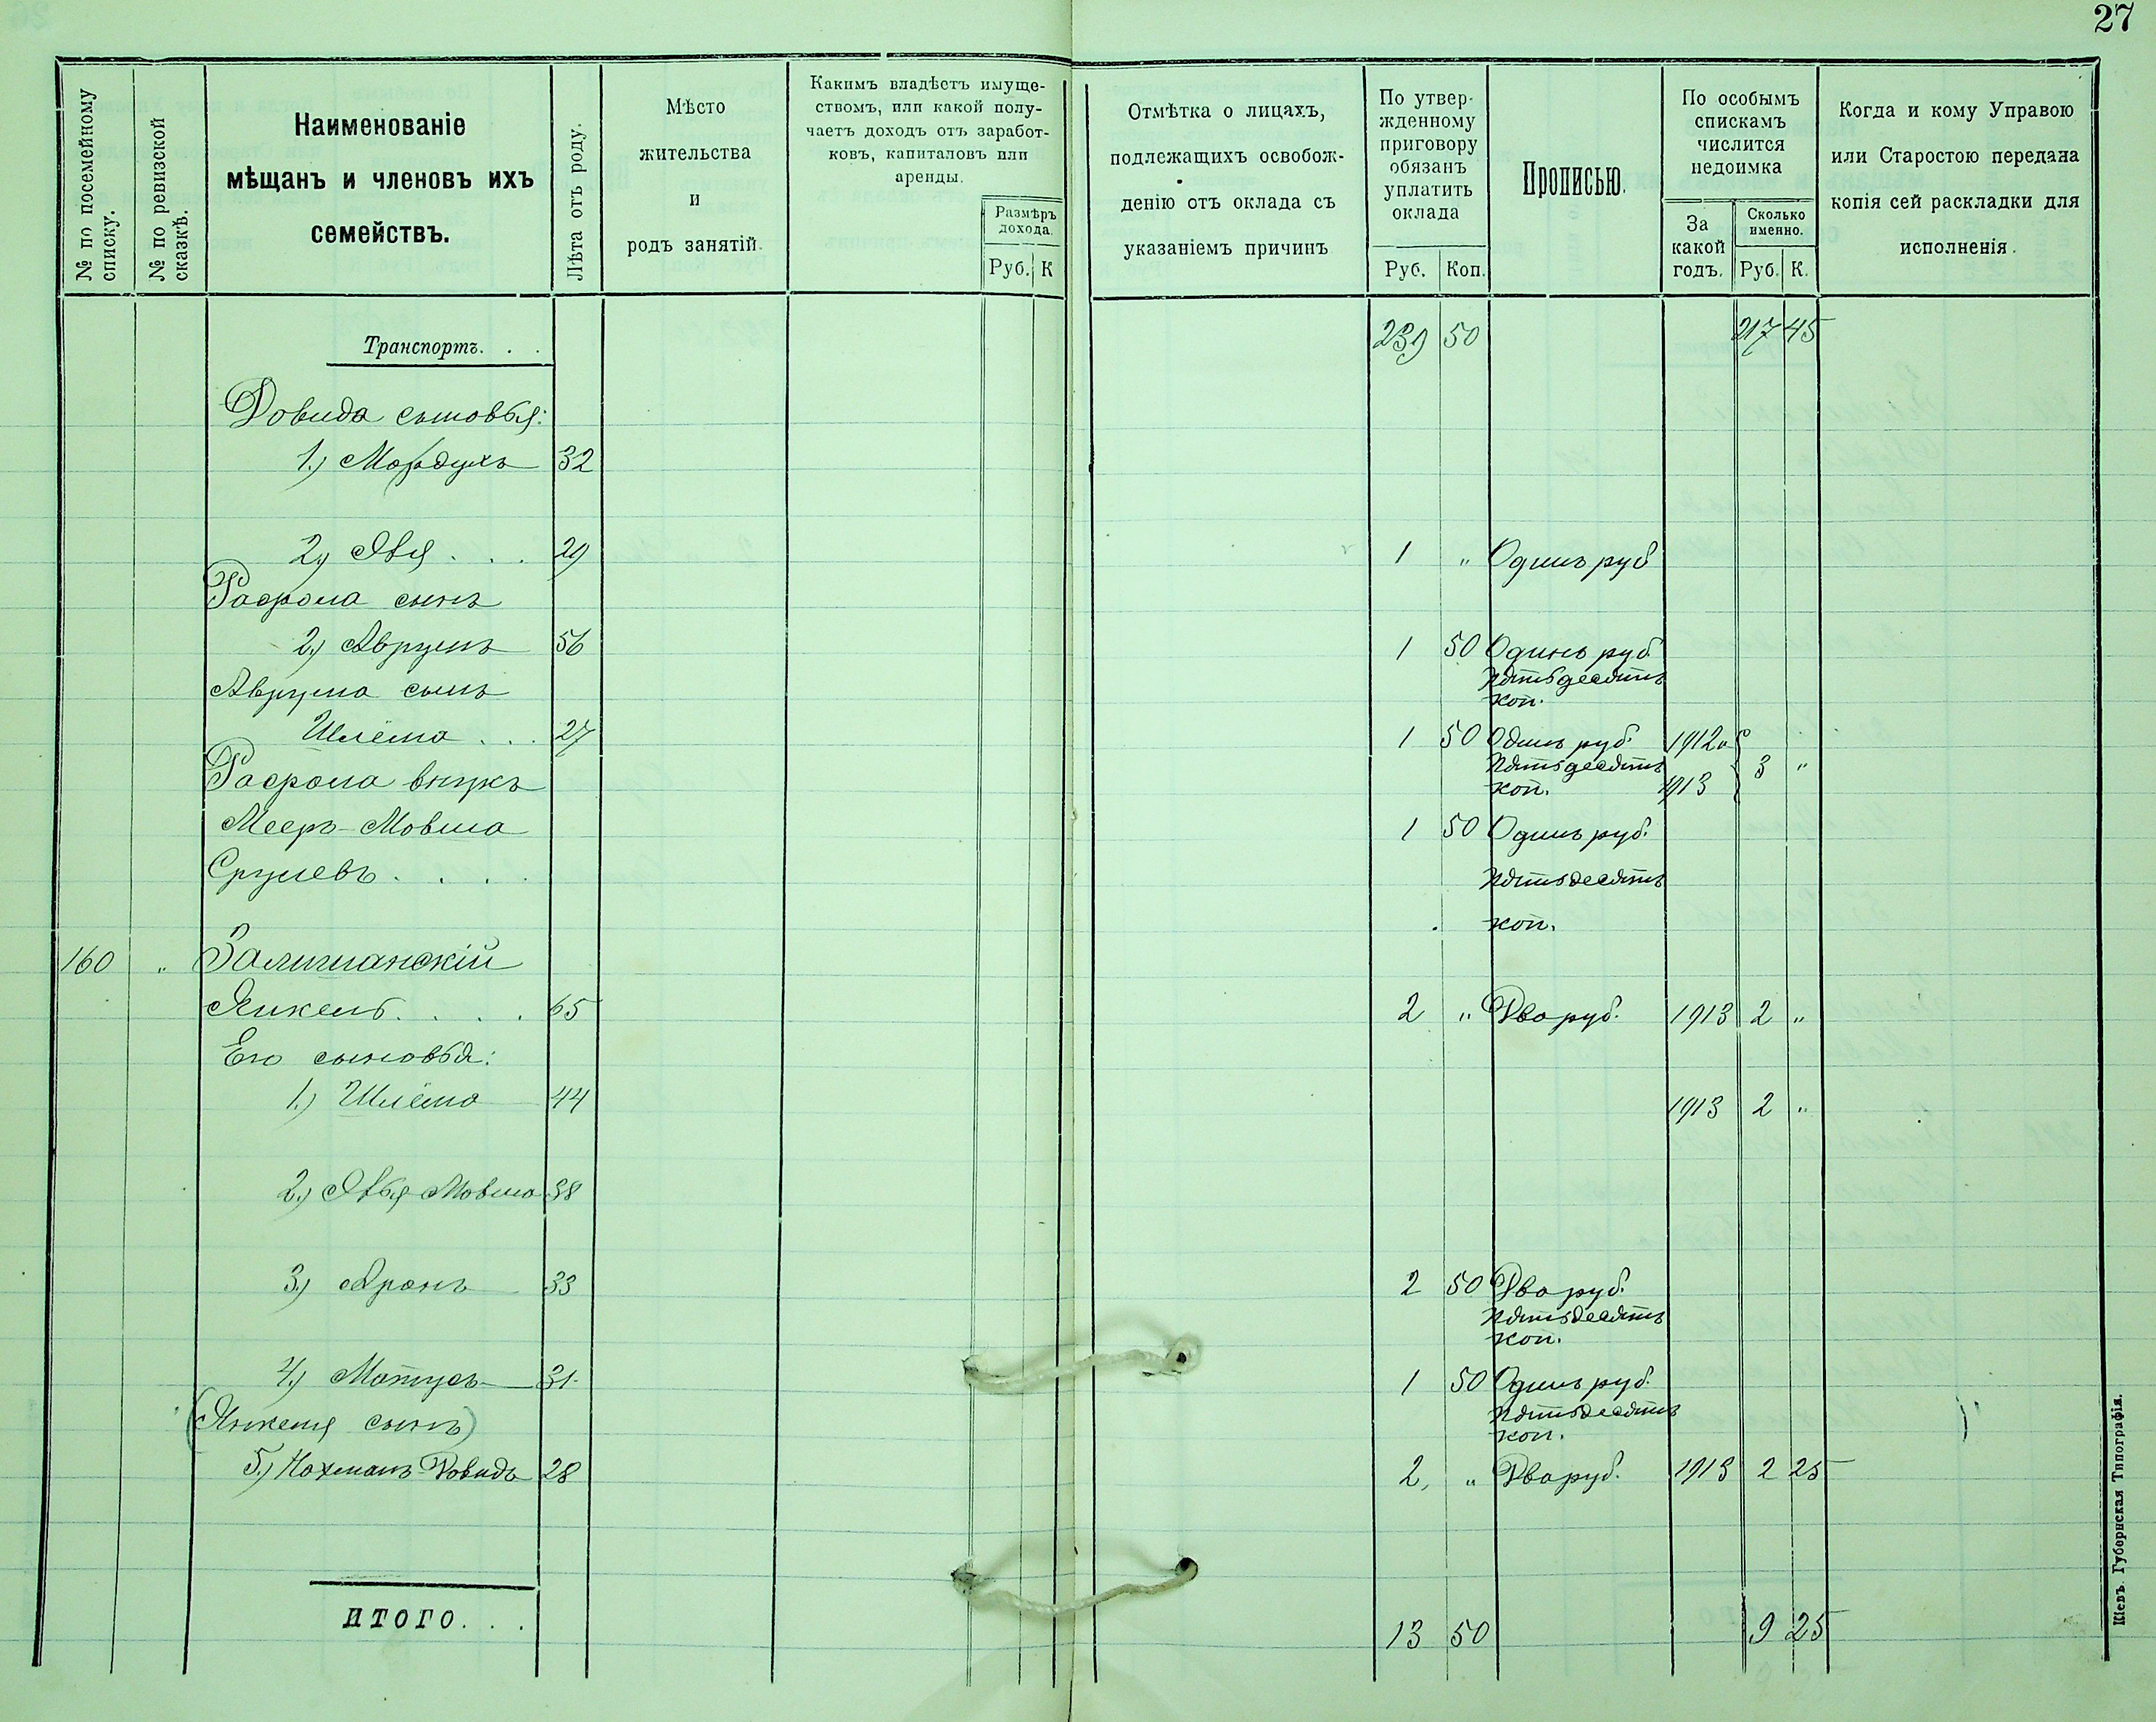 27
№ по посемейному списку.
№ по ревизской сказкѣ.
Наименованіе
мѣщанъ и членовъ ихъ
семействъ.
Лѣта отъ роду.
Мѣсто
жительства
и
родъ занятій.
Какимъ владѣетъ имуще-
ствомъ, или какой полу-
чаетъ доходъ отъ заработ-
ковъ, капиталовъ или
аренды.
Размѣръ
дохода.
Руб. К
Отмѣтка о лицахъ,
подлежащихъ освобож-
денію отъ оклада съ
указаніемъ причинъ
По утвер-
жденному
приговору
обязанъ
уплатить
оклада
Руб. Коп.
Прописью.
По особымъ
спискамъ
числится
недоимка
За
какой
годъ.
Сколько
именно.
Руб. К.
Когда и кому Управою
или Старостою передана
копія сей раскладки для
исполненія.
Транспортъ. . . 239 50 217 45
Довида сыновья:
1.) Мордухъ 32
2.) Явя . . . 29 1 " Одинъ руб
Расрома сынъ
2.) Аврумъ 56 1 50 Одинъ руб.
Аврума сынъ пятьдесятъ
коп.
Шлёма . . . 27 1 50 Одинъ руб. 1912 и
Расрома внукъ пятьдесятъ 3 "
коп. 1913
Мееръ-Мовша 1 50 Одинъ руб.
Срулевъ . . . . пятьдесятъ
коп.
160 " Залишанскій
Янкель . . . . 65 2 " Два руб. 1913 2 "
Его сыновья:
1.) Шлёма 44 1913 2 "
2.) Явья Мовша 38
3.) Аронъ 33 2 50 Два руб.
пятьдесятъ
коп.
4.) Мотусь 31 1 50 Одинъ руб.
(Янкеля сынъ) пятьдесятъ
коп.
5.) Нахманъ-Довидъ 28 2, " Два руб. 1913 2 25
ИТОГО. . . 13 50 9 25
Кіевъ. Губернская Типографія.